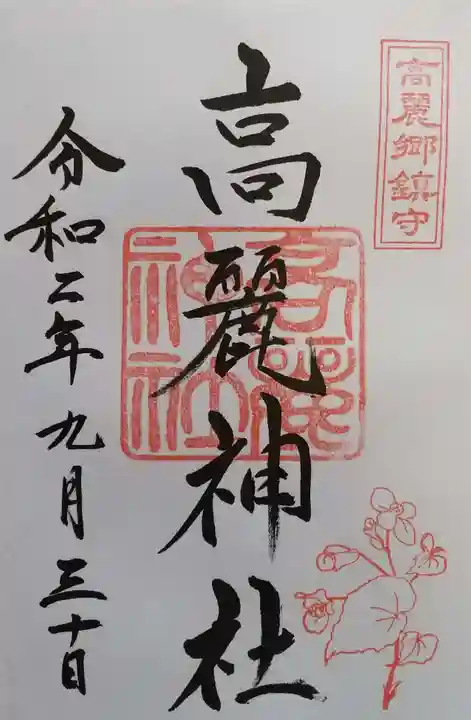 高麗郷鎮守
高麗神社
令和二年九月三十日
高麗神社